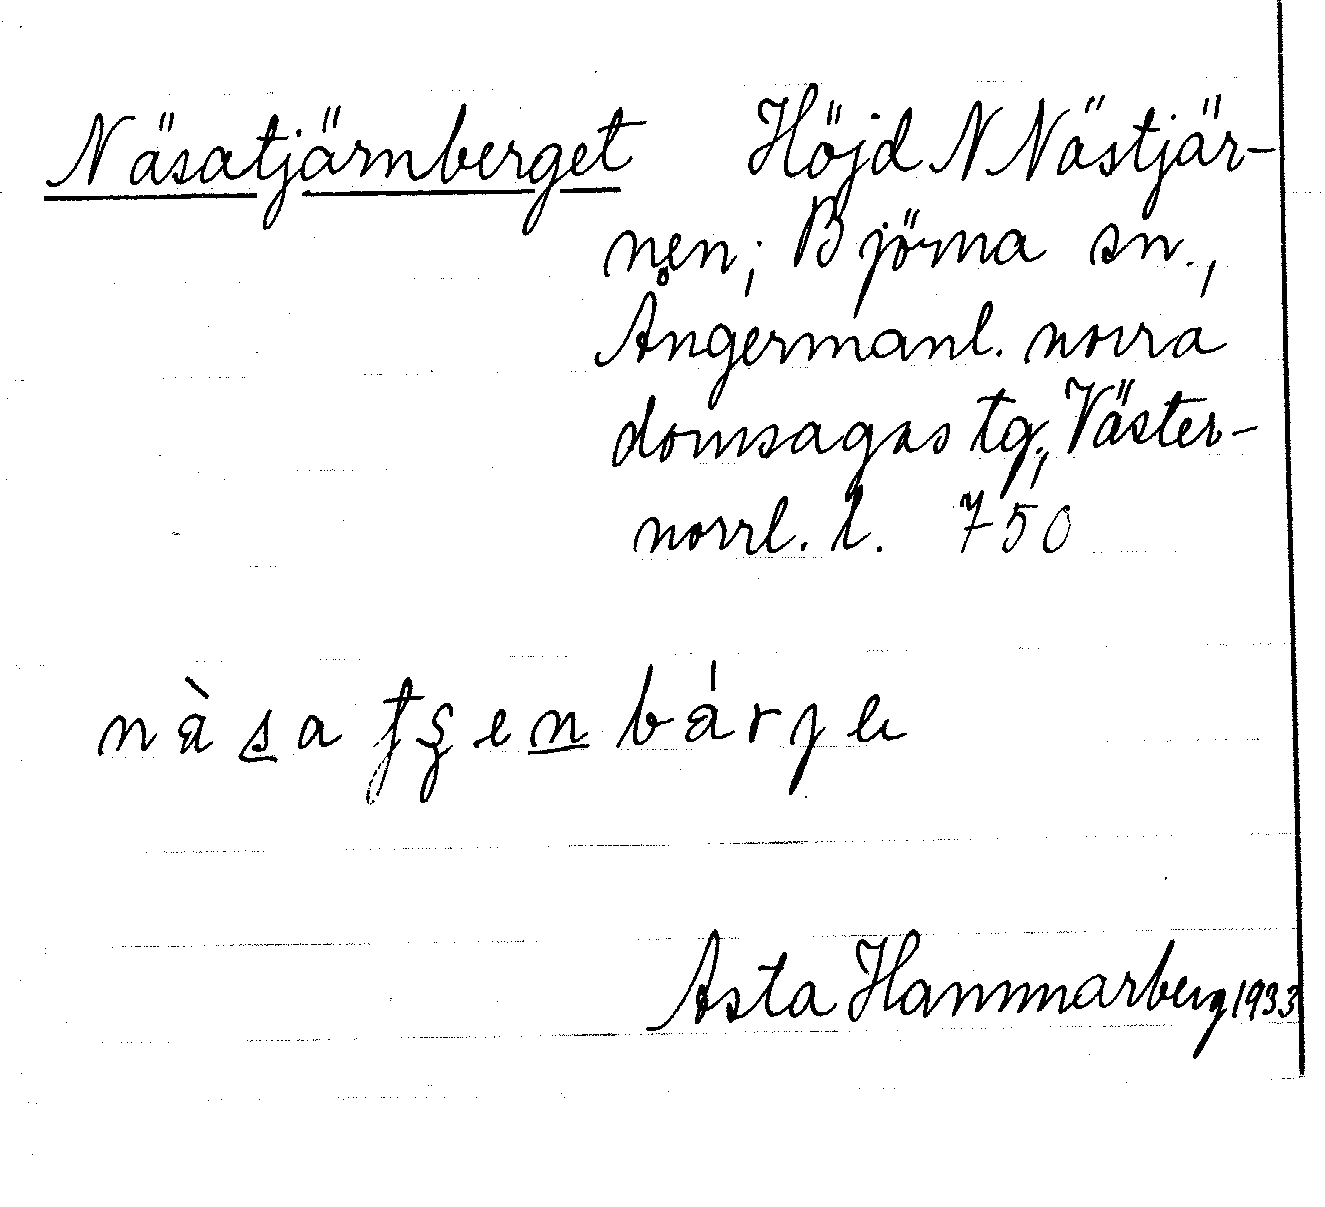 Näsatjärnberget Höjd N Nästjär-
nen; Björna sn.,
Ångermanl. norra
domsagas tg., Väster-
norrl. l. 750
nàsa tʂen bárɟe
Asta Hammarberg 1933